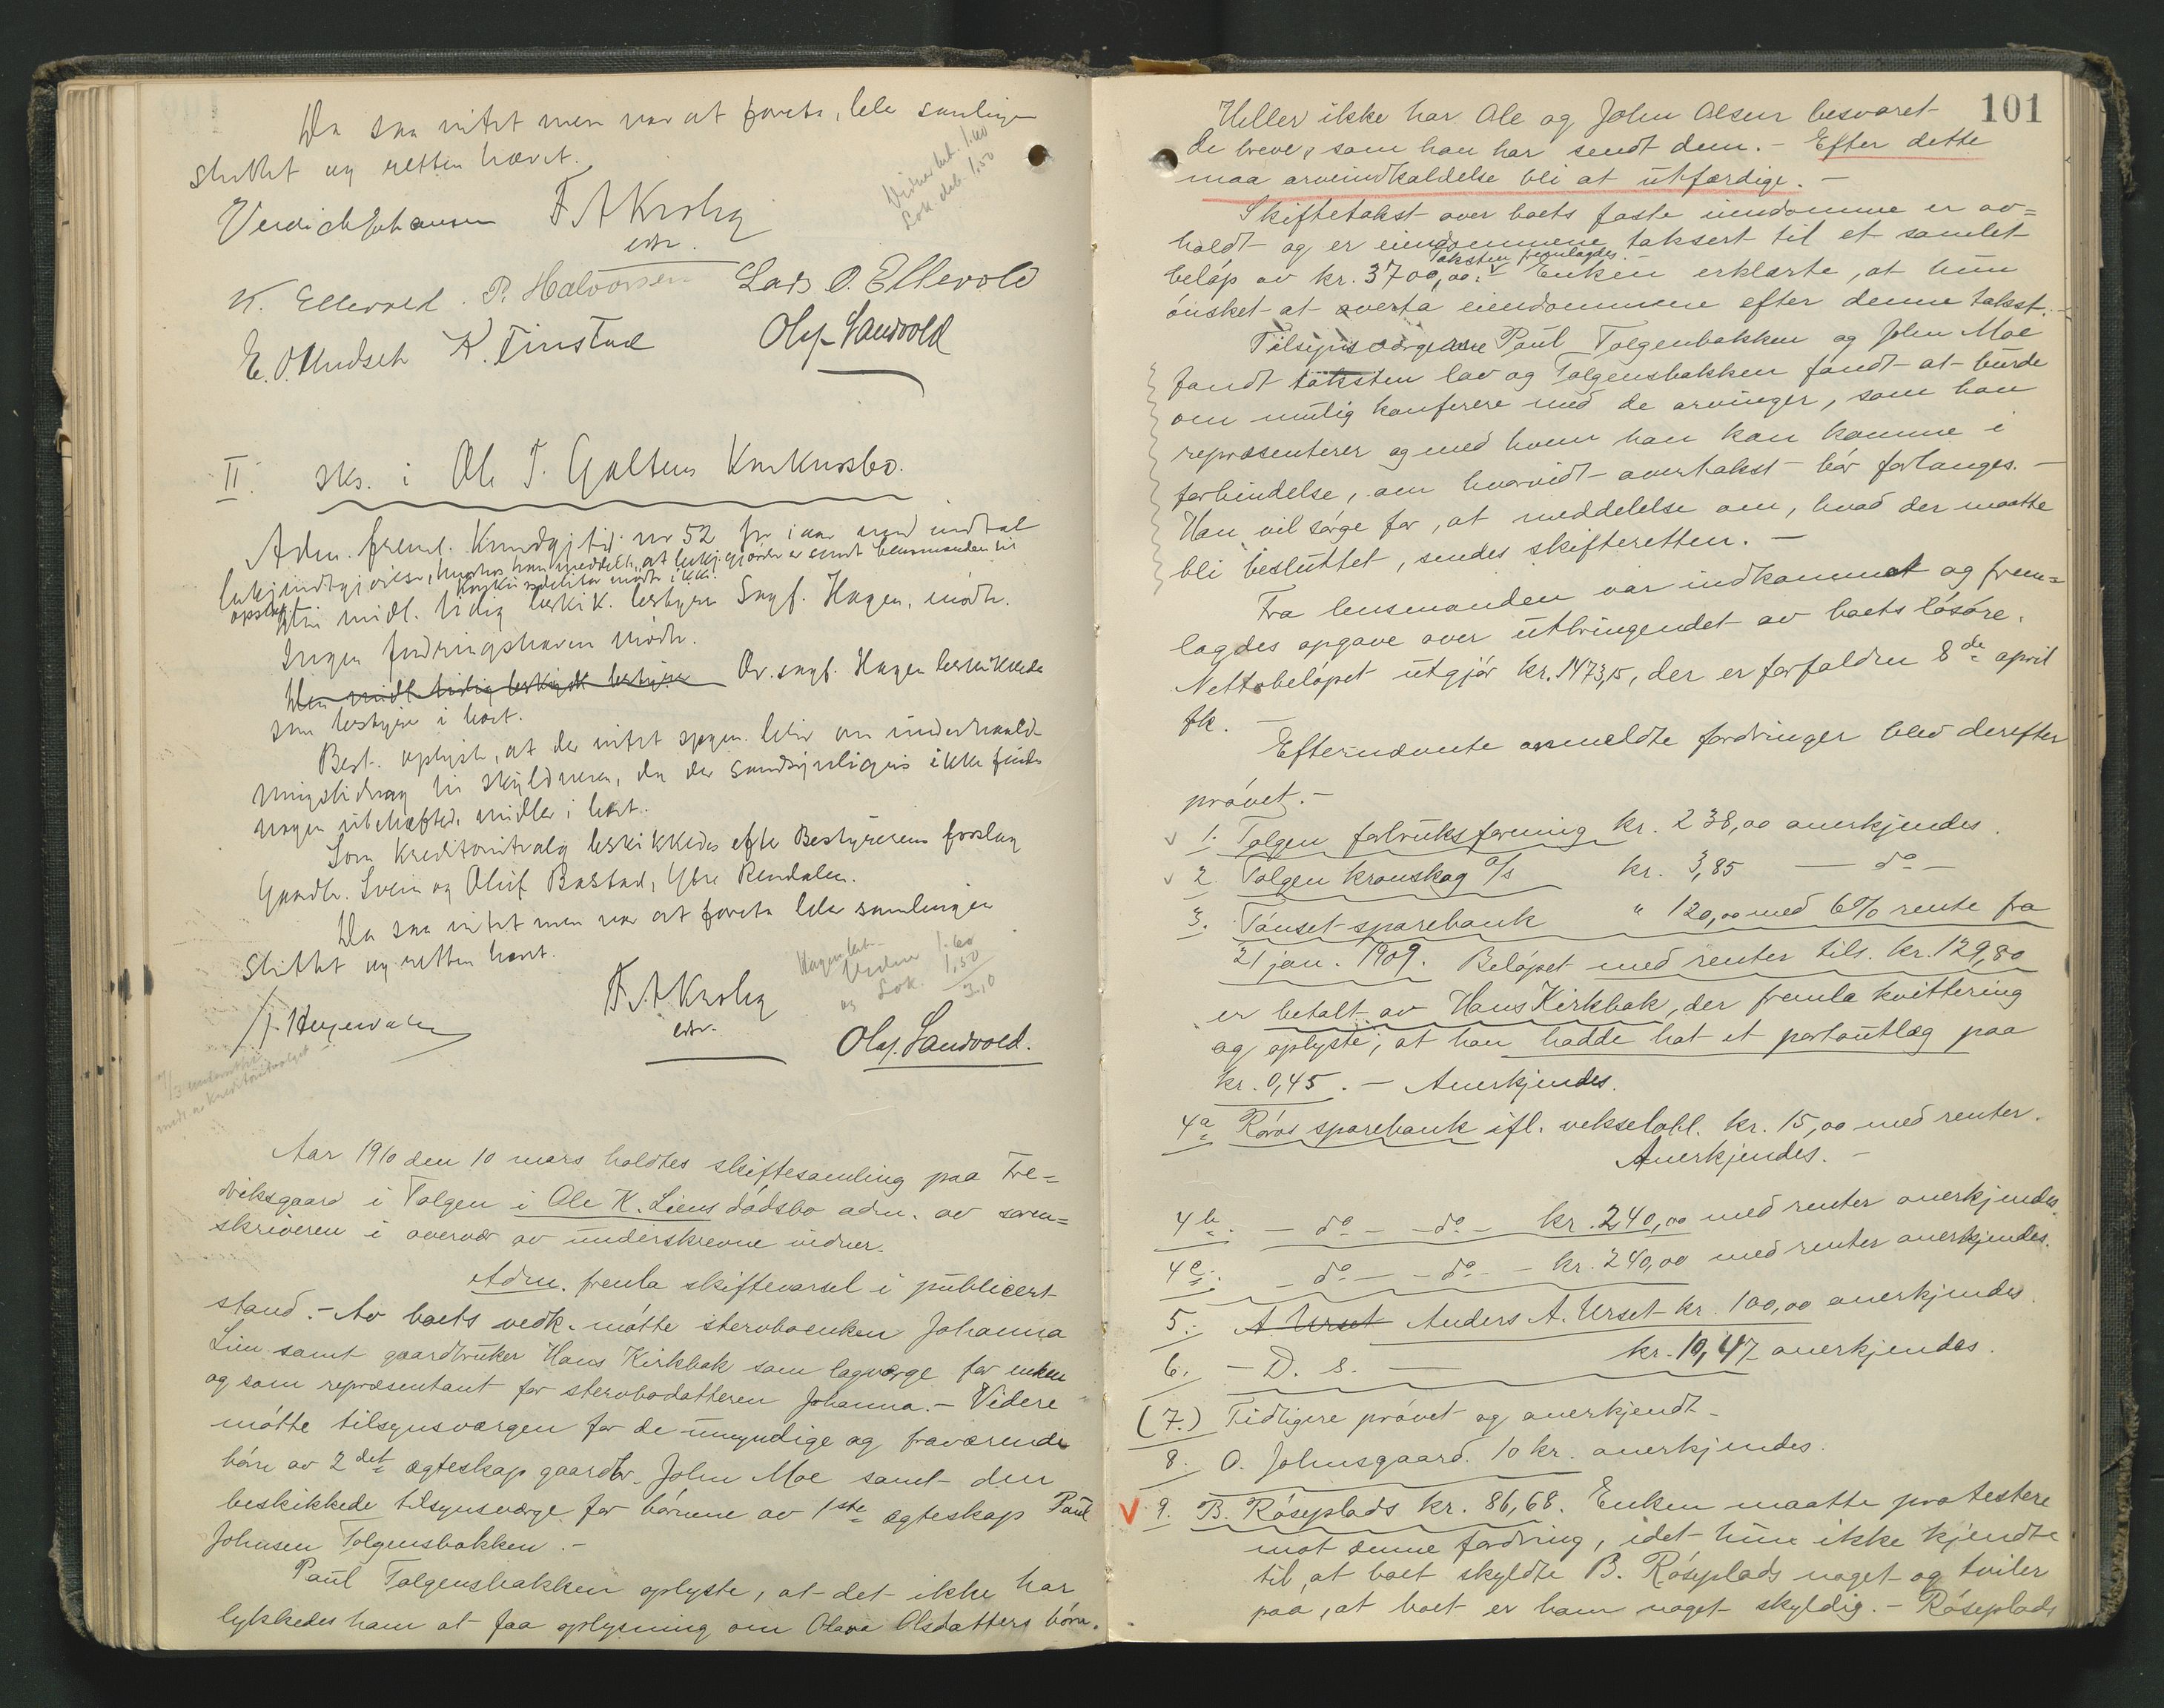 Da saa intet mer var at foreta, blev samlingen
sluttet og retten hævet.
Vidner bet. 1.60
Sok. deb. 1,50
F A Krohg
edsv.
K. Ellevold. P. Halvorsen Lars O. Ellevold
E. O. Knudsen K. Finstad Olaf Sandvold
II. Sks. i Ole T. Galtens Konkursbo.
Adm. freml. Kundgj. tid. nr 52 for iaar med indtat
bekjendtgjørelse, hvorhos han meddelte, at bekjgjørelse er sendt lensmanden til
opslag. Konkursdebitor mødte ikke.
Den midl. tidig beskik. bestyrer Sagf. Hagen, mødte.
Ingen fordringshaver mødte.
Den midl. tidig beskikk. bestyrer Or. sagf. Hagen beskikkedes
som bestyrer i boet.
Best. oplyste, at der intet spørsm. blir om underhold-
ningsbidrag til skyldneren, da der sandsynligvis ikke findes
nogen ubeheftede midler i boet.
Som Kreditorutvalg beskikkedes efter Bestyrerens forslag
Gaardbr. Svein og Oluf Bastad, Ytre Rendalen.
Da saa intet mer var at foreta blev samlingen
sluttet og retten hævet.
Hagen bet.
Vidner 1.60
og Sok. 1,50
3.10
F. A Krohg
edsv.
Olaf Sandvold.
Aar 1910 den 10 mars holdtes skiftesamling paa Fre=
viksgaard i Tolgen i Ole K. Liens dödsbo adm. av soren=
skriveren i overvær av underskrevne vidner.
Adm. fremla skiftevarsel i publicert
stand. – Av boets vedk. mötte stervboenken Johanna
Lien samt gaardbruker Hans Kirkbak som lagverge for enken
og som repræsentant for stervbodatteren Johanna. – Videre
mötte tilsynsvergen for de umyndige og fraværende
börn av 2det egteskap gaardbr. John Moe samt den
beskikkede tilsynsverge for börnene av 1ste egteskap Paul
Johnsen Tolgensbakken. –
Paul Tolgensbakken oplyste, at det ikke har
lykkedes ham at faa oplysning om Olava Olsdatters börn.
101
Heller ikke har Ole og John Olsen besvaret
de breve, som han har sendt dem. – Efter dette
maa arveindkaldelse bli at utfærdige. –
Skiftetakst over boets faste eiendomme er av=
holdt og er eiendommene taksert til et samlet
Taksten fremlagdes.
belöp av kr. 3700,00. Enken erklærte, at hun
önsket at overta eiendommene efter denne takst. –
Tilsynsvergerne Paul Tolgenbakken og John Moe
fandt taksten lav og Tolgensbakken fandt at burde
om mulig konferere med de arvinger, som han
repræsenterer og med hvem han kan komme i
forbindelse, om hvorvidt overtakst bör forlanges. –
Han vil sörge for, at meddelelse om, hvad der maatte
bli besluttet, sendes skifteretten. –
Fra lensmanden var indkommet og frem=
lagdes opgave over utbringendet av boets lösöre.
Nettobelöpet utgjör kr. 1473,15, der er forfalden 8de april
fk. –
Efternævnte anmeldte fordringer blev derefter
prövet. –
1. Tolgen forbruksforening kr. 238,00 anerkjendes.
2. Tolgen kronskog a/s kr. 3,85 — do —
3. Tönset sparebank " 120,00 med 6% rente fra
21 jan. 1909. Belöpet med renter tils. kr. 129,80
er betalt av Hans Kirkbak, der fremla kvittering
og oplyste, at han hadde hat et portoutlæg paa
kr. 0,45. – Anerkjendes.
4a Röros sparebank ifl. vekselobl. kr. 15,00 med renter.
Anerkjendes. –
4b. – do – – do – kr. 240,00 med renter anerkjendes.
4c. – do – – do – kr. 240,00 med renter anerkjendes.
5. A Urset Anders A. Urset kr. 100,00 anerkjendes.
6. – D. s. — kr. 10,47 anerkjendes.
(7.) Tidligere prövet og anerkjendt –
8. O. Johnsgaard. 10 kr. anerkjendes.
9. B. Röseplads kr. 86,68. Enken maatte protestere
mot denne fordring, idet hun ikke kjendte
til, at boet skyldte B. Röseplads noget og tviler
paa, at boet er ham noget skyldig. – Röseplads